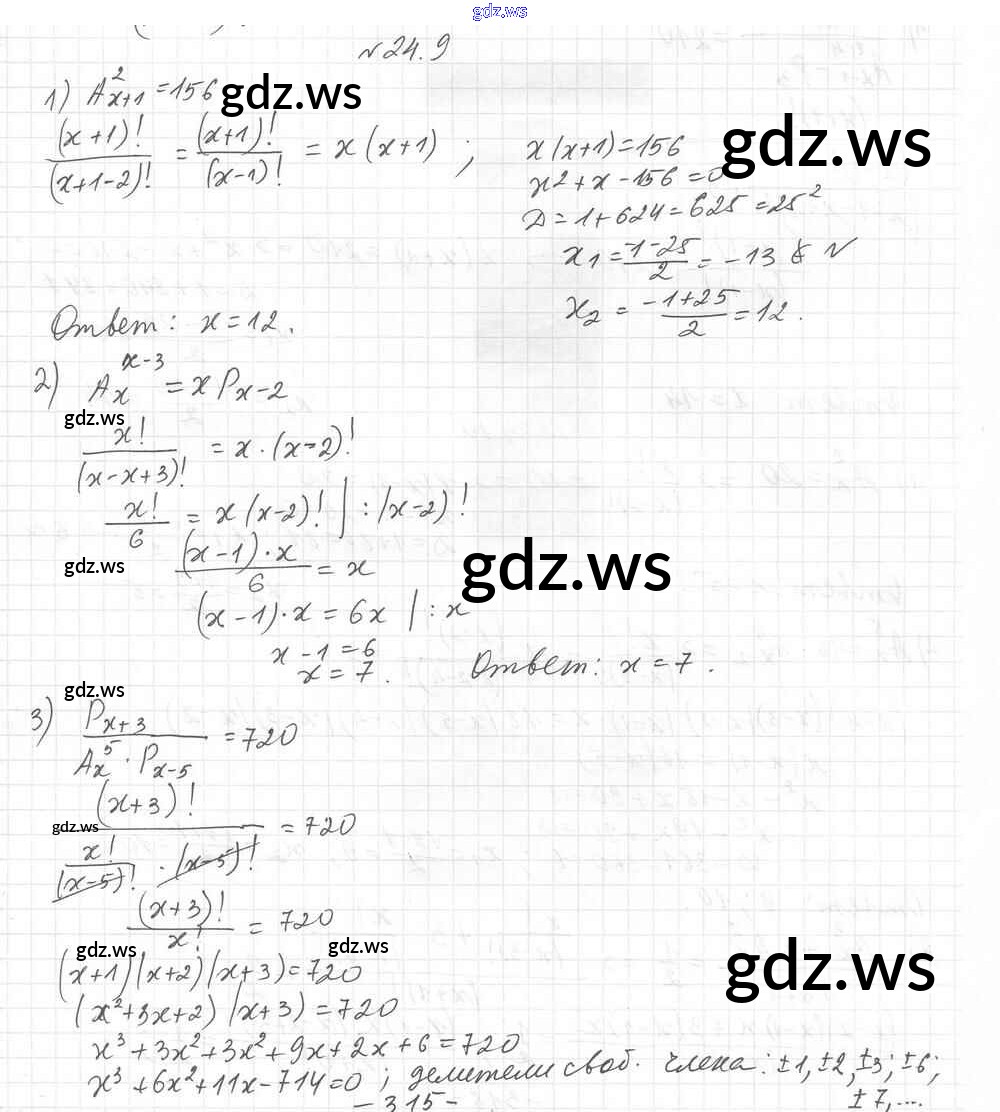 gdz.ws
№24.9
1) A²ₓ₊₁ = 156 gdz.ws
(x+1)!/(x+1-2)! = (x+1)!/(x-1)! = x(x+1) ; x(x+1) = 156 gdz.ws
x² + x - 156 = 0
Д = 1 + 624 = 625 = 25²
x₁ = (-1-25)/2 = -13 ∉ N
x₂ = (-1+25)/2 = 12.
Ответ: x = 12.
2) Aₓˣ⁻³ = x Pₓ₋₂
gdz.ws
x!/(x-x+3)! = x · (x-2)!
x!/6 = x(x-2)! | : (x-2)!
gdz.ws
gdz.ws
(x-1)·x/6 = x
(x-1)·x = 6x | : x
x - 1 = 6
x = 7. Ответ: x = 7.
gdz.ws
3) Pₓ₊₃/(Aₓ⁵ · Pₓ₋₅) = 720
gdz.ws
(x+3)!/(x!/(x-5)! · (x-5)!) = 720
(x+3)!/x! = 720
gdz.ws
gdz.ws
gdz.ws
(x+1)(x+2)(x+3) = 720
(x²+3x+2)(x+3) = 720
x³ + 3x² + 3x² + 9x + 2x + 6 = 720
x³ + 6x² + 11x - 714 = 0 ; делители своб. члена: ±1, ±2, ±3; ±6;
±7,...
- 315 -